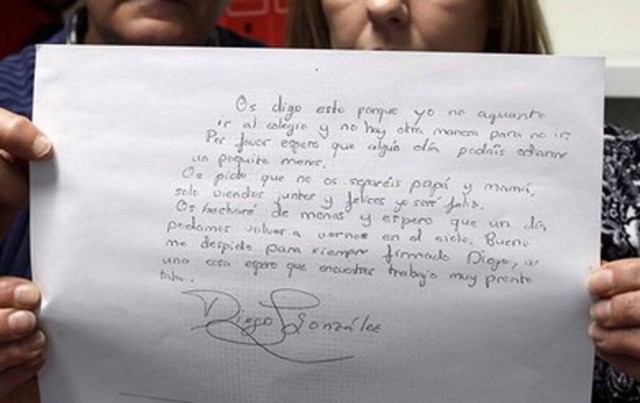 Os digo esto porque yo no aguanto
ir al colegio y no hay otra manera para no ir.
Por favor espero que algún día podáis odiarme
un poquito menos.
Os pido que no os separéis papá y mamá,
solo viendos juntos y felices yo seré feliz.
Os hecharé de menos y espero que un día
podamos volver a vernos en el cielo. Bueno
me despido para siempre firmado Diego, a
una cosa espero que encuentres trabajo muy pronto
Diego González